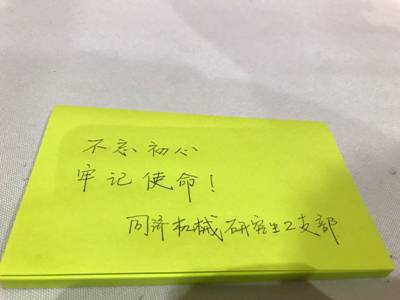 不忘初心
牢记使命！
同济机械研究生2支部